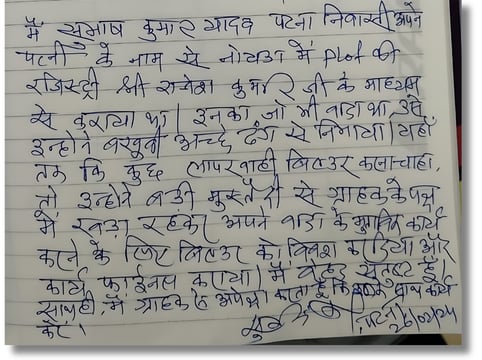 मैं सुभाष कुमार यादव पटना निवासी अपने
पटनी के नाम से नोयडा में plot की
रजिस्ट्री श्री राकेश कुमार जी के माध्यम
से कराया था। इनका जो भी वादा था, उसे
इन्होंने बखूबी अच्छे ढंग से निभाया। यहाँ
तक कि कुछ लापरवाही बिल्डर करना चाहा,
तो उन्होंने बड़ी मुस्तैदी से ग्राहक के पक्ष
में खड़ा रहकर अपने वादा के मुताबिक कार्य
करने के लिए बिल्डर को विवश कर दिया और
कार्य फाईनल कराया। मैं बेहद संतुष्ट हूँ।
साथ ही, मैं ग्राहक से अपेक्षा करता हूँ कि इनके साथ कार्य
करें।
पटना
26/02/24